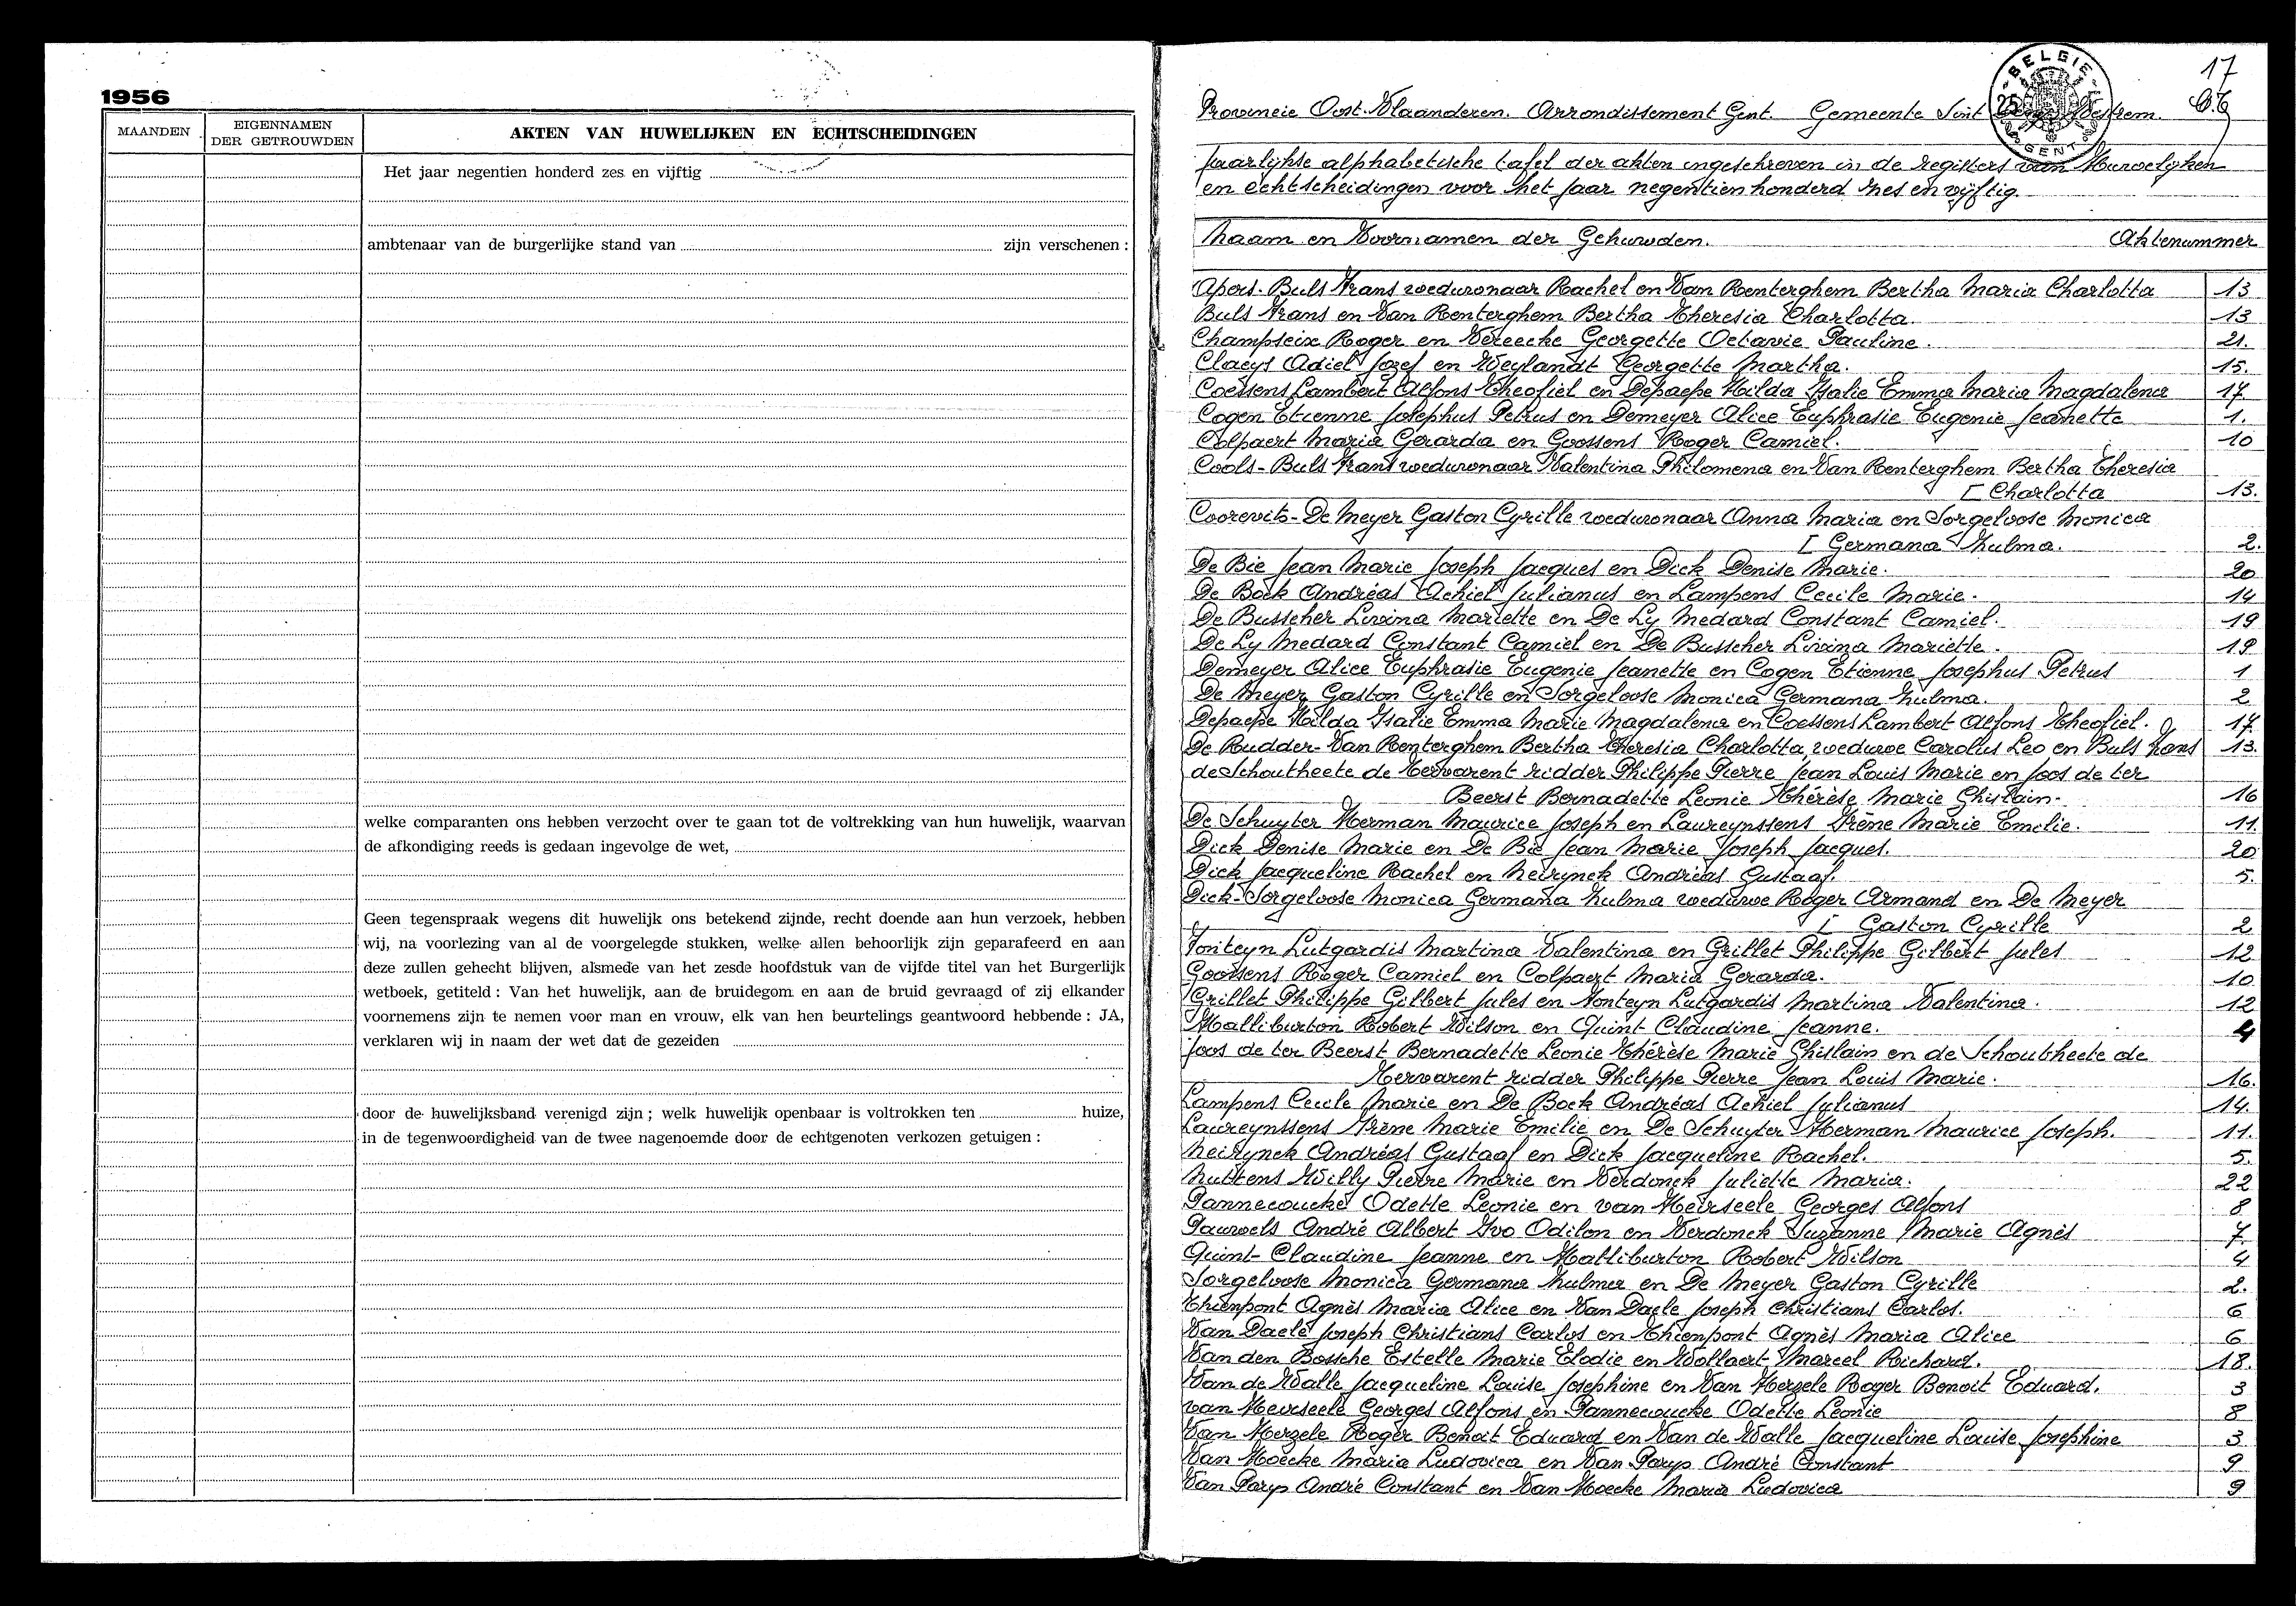 1956
MAANDEN
EIGENNAMEN
DER GETROUWDEN
AKTEN VAN HUWELIJKEN EN ECHTSCHEIDINGEN
Het jaar negentien honderd zes en vijftig
ambtenaar van de burgerlijke stand van zijn verschenen :
welke comparanten ons hebben verzocht over te gaan tot de voltrekking van hun huwelijk, waarvan
de afkondiging reeds is gedaan ingevolge de wet,
Geen tegenspraak wegens dit huwelijk ons betekend zijnde, recht doende aan hun verzoek, hebben
wij, na voorlezing van al de voorgelegde stukken, welke allen behoorlijk zijn geparafeerd en aan
deze zullen gehecht blijven, alsmede van het zesde hoofdstuk van de vijfde titel van het Burgerlijk
wetboek, getiteld : Van het huwelijk, aan de bruidegom en aan de bruid gevraagd of zij elkander
voornemens zijn te nemen voor man en vrouw, elk van hen beurtelings geantwoord hebbende : JA,
verklaren wij in naam der wet dat de gezeiden
door de huwelijksband verenigd zijn ; welk huwelijk openbaar is voltrokken ten huize,
in de tegenwoordigheid van de twee nagenoemde door de echtgenoten verkozen getuigen :
17
BELGIE
GENT
Provincie Oost-Vlaanderen. Arrondissement Gent. Gemeente Sint Westrem.
Jaarlijkse alphabetische tafel der akten ingeschreven in de registers van Huwelijken
en echtscheidingen voor het jaar negentienhonderd zes en vijftig.
Naam en Voornamen der Gehuwden. Aktenummer
Apers-Buls Frans weduwnaar Rachel en Van Renterghem Bertha Maria Charlotta 13
Buls Frans en Van Renterghem Bertha Theresia Charlotta. 13
Champseix Roger en Vereecke Georgette Octavie Pauline. 21.
Claeys Adiel Jozef en Weylandt Georgette Martha. 15.
Coessens Lambert Alfons Theofiel en Depaepe Hilda Isalie Emma Maria Magdalena 17
Cogen Etienne Josephus Petrus en Demeyer Alice Euphrasie Eugenie Jeanette 1.
Colpaert Maria Gerarda en Goossens Roger Camiel. 10
Cools-Buls Frans weduwnaar Valentina Philomena en Van Renterghem Bertha Theresia
[ Charlotta 13.
Coorevits-De Meyer Gaston Cyrille weduwnaar Anna Maria en Sorgeloose Monica
[ Germana Zulma. 2.
De Bie Jean Marie Joseph Jacques en Dick Denise Marie. 20
De Bock Andréas Achiel Julianus en Lampens Cecile Marie. 14
De Busscher Livina Mariette en De Ly Medard Constant Camiel. 19
De Ly Medard Constant Camiel en De Busscher Livina Mariette. 19
Demeyer Alice Euphrasie Eugenie Jeanette en Cogen Etienne Josephus Petrus 1
De Meyer Gaston Cyrille en Sorgeloose Monica Germana Zulma. 2
Depaepe Hilda Isalie Emma Marie Magdalena en Coessens Lambert Alfons Theofiel. 17.
De Rudder-Van Renterghem Bertha Theresia Charlotta, weduwe Carolus Leo en Buls Frans 13.
de Schoutheete de Tervarent ridder Philippe Pierre Jean Louis Marie en Joos de ter
Beerst Bernadette Leonie Thérèse Marie Ghislain. 16
De Schuyter Herman Maurice Joseph en Laureynssens Irène Marie Emilie. 11.
Dick Denise Marie en De Bie Jean Marie Joseph Jacques. 20
Dick Jacqueline Rachel en Neirynck Andréas Gustaaf. 5.
Dick-Sorgeloose Monica Germana Zulma weduwe Roger Armand en De Meyer
[ Gaston Cyrille 2
Fonteyn Lutgardis Martina Valentina en Grillet Philippe Gilbert Jules 12
Goossens Roger Camiel en Colpaert Maria Gerarda. 10
Grillet Philippe Gilbert Jules en Fonteyn Lutgardis Martina Valentina. 12
Halliburton Robert Wilson en Quint Claudine Jeanne. 4
Joos de ter Beerst Bernadette Leonie Thérèse Marie Ghislain en de Schoutheete de
Tervarent ridder Philippe Pierre Jean Louis Marie. 16.
Lampens Cecile Marie en De Bock Andréas Achiel Julianus 14.
Laureynssens Irène Marie Emilie en De Schuyter Herman Maurice Joseph. 11.
Neirynck Andréas Gustaaf en Dick Jacqueline Rachel. 5.
Nuttens Willy Pierre Marie en Verdonck Juliette Maria. 22
Pannecoucke Odette Leonie en van Heirseele Georges Alfons 8
Pauwels André Albert Ivo Odilon en Verdonck Suzanne Marie Agnès 7.
Quint Claudine Jeanne en Halliburton Robert Wilson 4
Sorgeloose Monica Germana Zulma en De Meyer Gaston Cyrille 2.
Thienpont Agnès Maria Alice en Van Daele Joseph Christians Carlos. 6
Van Daele Joseph Christians Carlos en Thienpont Agnès Maria Alice 6
Van den Bossche Estelle Marie Elodie en Wollaert Marcel Richard. 18.
Van de Walle Jacqueline Louise Josephine en Van Herzele Roger Benoit Eduard. 3
van Heirseele Georges Alfons en Pannecoucke Odette Leonie 8
Van Herzele Roger Benoit Eduard en Van de Walle Jacqueline Louise Josephine 3
Van Hoecke Maria Ludovica en Van Parys André Constant 9
Van Parys André Constant en Van Hoecke Maria Ludovica 9